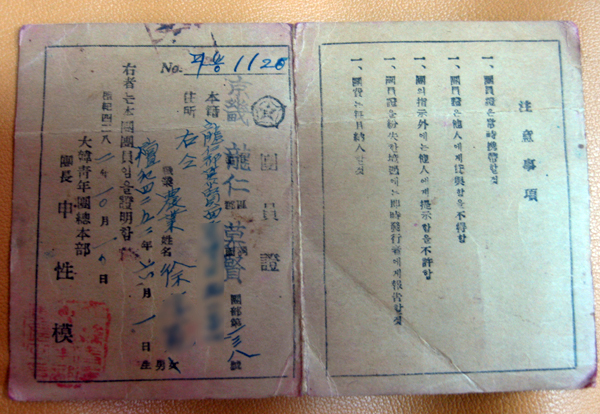 注意事項
一、團員證은常時携帶할것
一、團員證은他人에게貸與함을不得함
一、團의指示外에는他人에게提示함을不許함
一、團員證을紛失한境遇에는即時發行者에게報告할것
一、團費는每月納入할것
團員證
No. 1126
京畿 龍仁 慕賢
本籍
住所 右仝
職業 農業 姓名 徐
檀紀四二 年六月一日生 男
右者는本團團員임을證明함
檀紀四二八二年一〇月一 日
大韓青年團總本部
團長 申性模